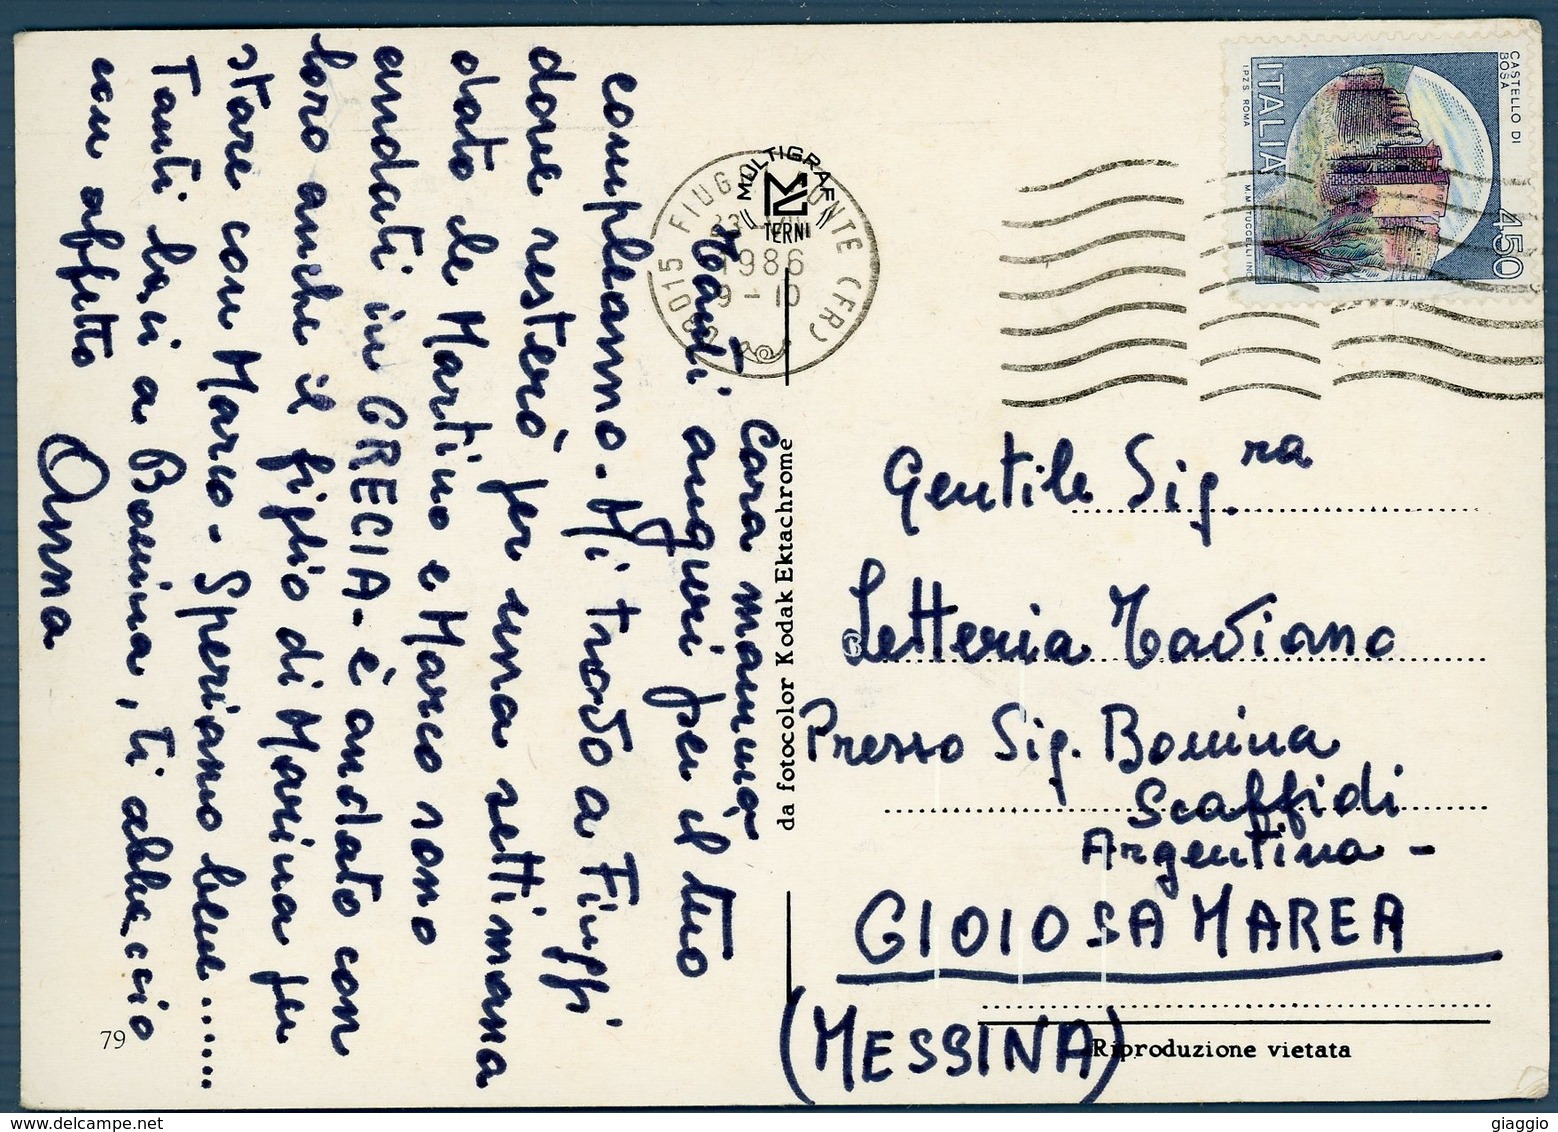 Cara mamma
Tanti auguri per il tuo
compleanno - Mi trovo a Fiuggi
dove resterò per una settimana
dato che Martino e Marco sono
andati in GRECIA - è andato con
loro anche il figlio di Marina per
stare con Marco - Speriamo bene ......
Tanti baci a Bonina, ti abbraccio
con affetto
Anna
79
MULTIGRAF
TERNI
da fotocolor Kodak Ektachrome
03015 FIUGGI FONTE (FR)
1986
9-10
CASTELLO DI
BOSA
450
ITALIA
I.P.Z.S. ROMA
M.M. TUCCELLI INC.
Gentile Sig.ra
Letteria Taviano
Presso Sig. Bonina
Scaffidi
Argentina -
GIOIOSA MAREA
(MESSINA)
Riproduzione vietata
giaggio